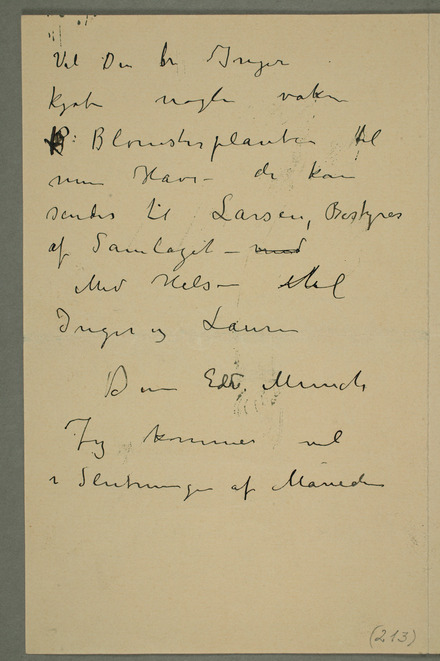 Vil Du be Inger
kjøbe nogle vakre
Blomsterplanter til
min Have – de kan
sendes til Larsen, Bestyrer
af Samlaget –
Med Hilsen til
Inger og Laura
Din Edv. Munch
Jeg kommer vel
i Slutningen af Måneden
(213)